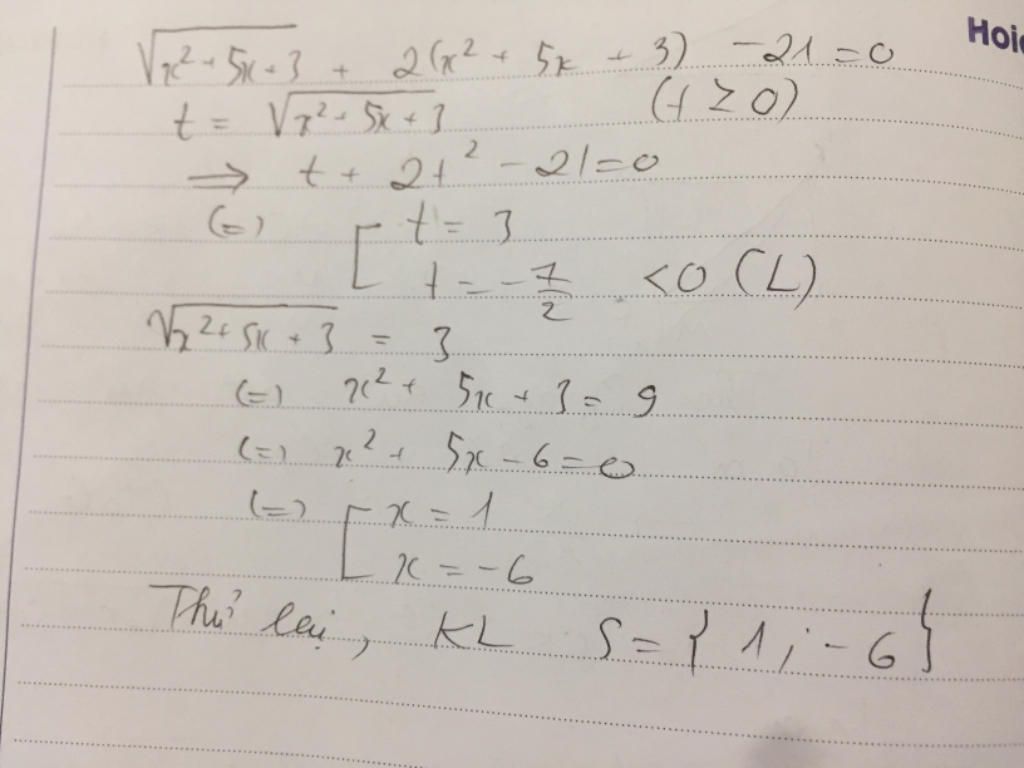 Hoic
√(x² + 5x + 3) + 2(x² + 5x + 3) - 21 = 0
t = √(x² + 5x + 3) (t ≥ 0)
⇒ t + 2t² - 21 = 0
(=) [ t = 3
t = -7/2 < 0 (L)
√(x² + 5x + 3) = 3
(=) x² + 5x + 3 = 9
(=) x² + 5x - 6 = 0
(=) [ x = 1
x = -6
Thử lại, KL S = { 1 ; -6 }